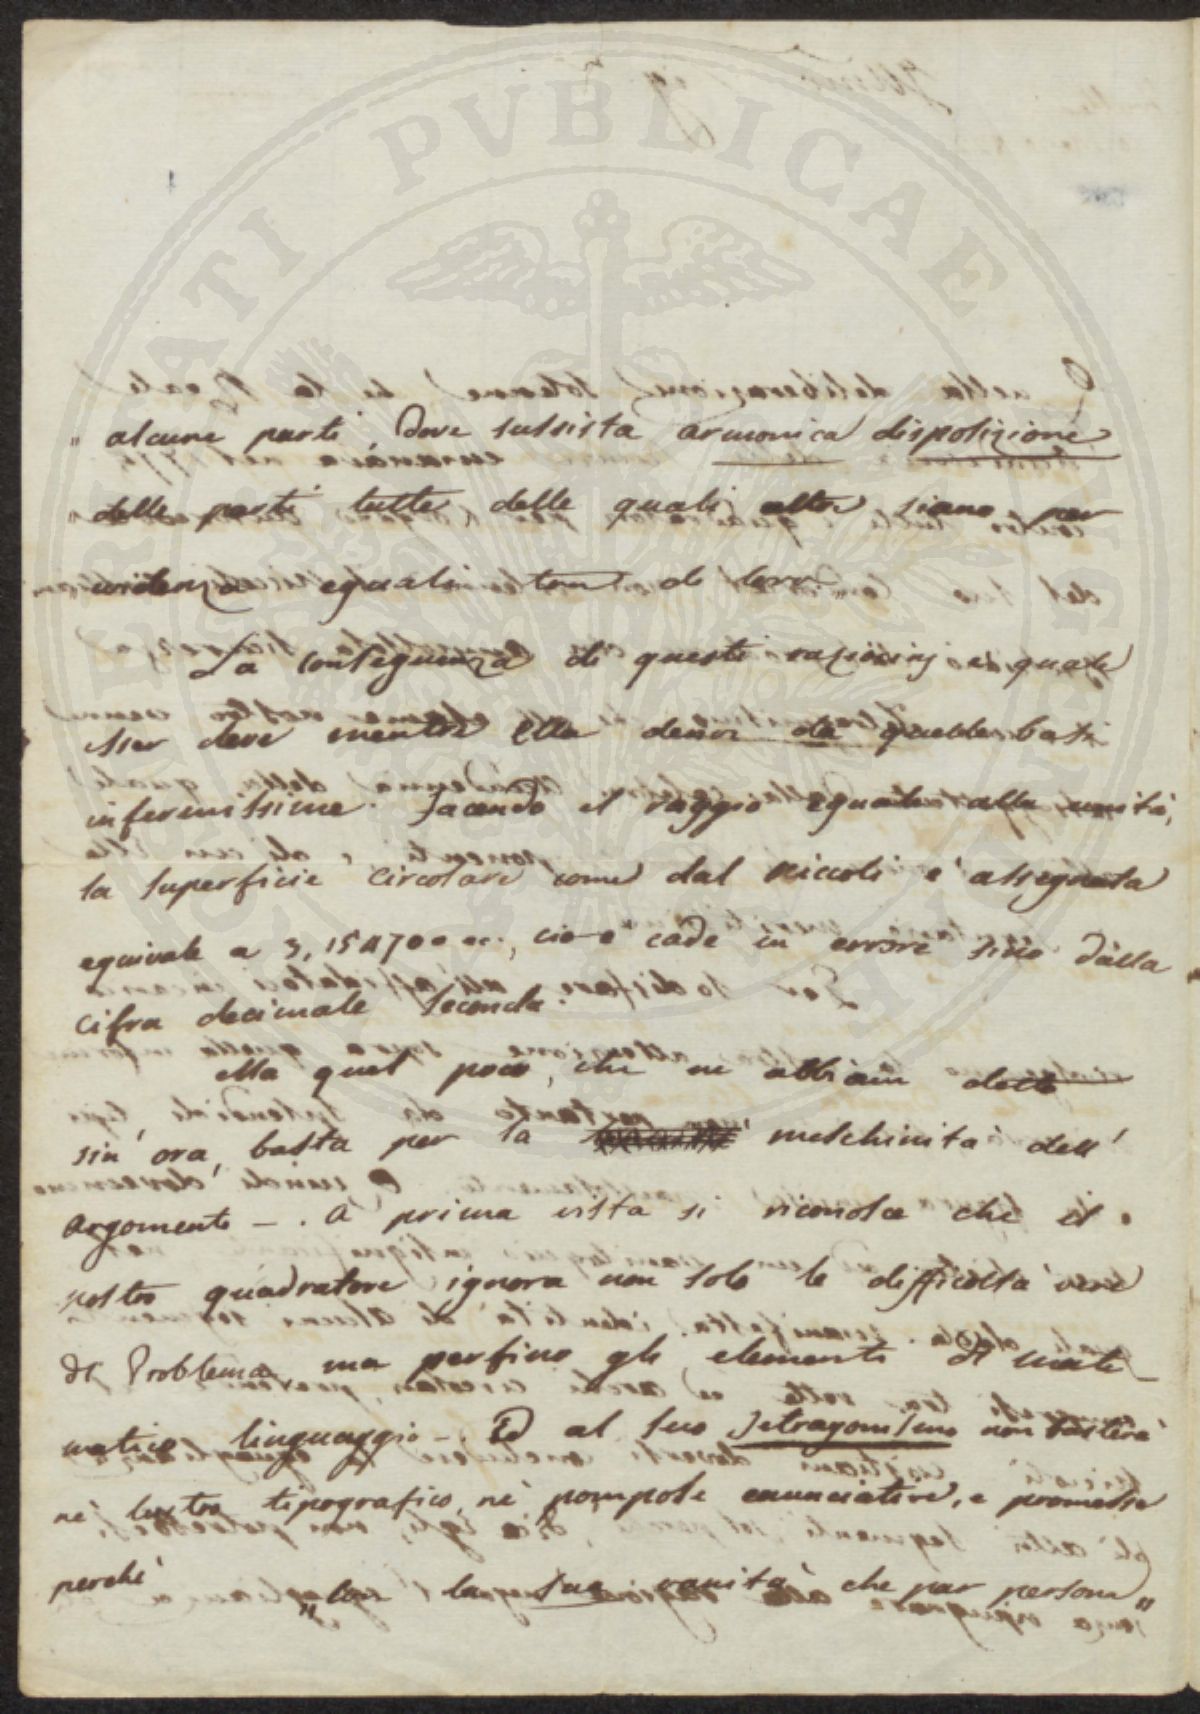 „ alcune parti, dove sussista armonica disposizione
delle parti tutte delle quali altre siano per
evidenza eguali tra di loro
La conseguenza di questi raziocinj è quale
esser deve mentre Ella deriva da quelle basi
infermissime. Facendo il raggio eguale alla unità,
la superficie circolare come dal Piccoli è assegnata
equivale a 3,154700 ec., cioè cade in errore sino dalla
cifra decimale seconda.
Ma quel poco, che ne abbiam detto
sin' ora, basta per la meschinità dell'
argomento —. A prima vista si riconosce che il
nostro quadratore ignora non solo le difficoltà vere
del Problema, ma perfino gli elementi di mate-
matico linguaggio —. Ed al suo Tetragonismo non basterà
nè lustro tipografico, nè pompose enunciative, e promesse
perchè
„ la sua vanità che par persona „